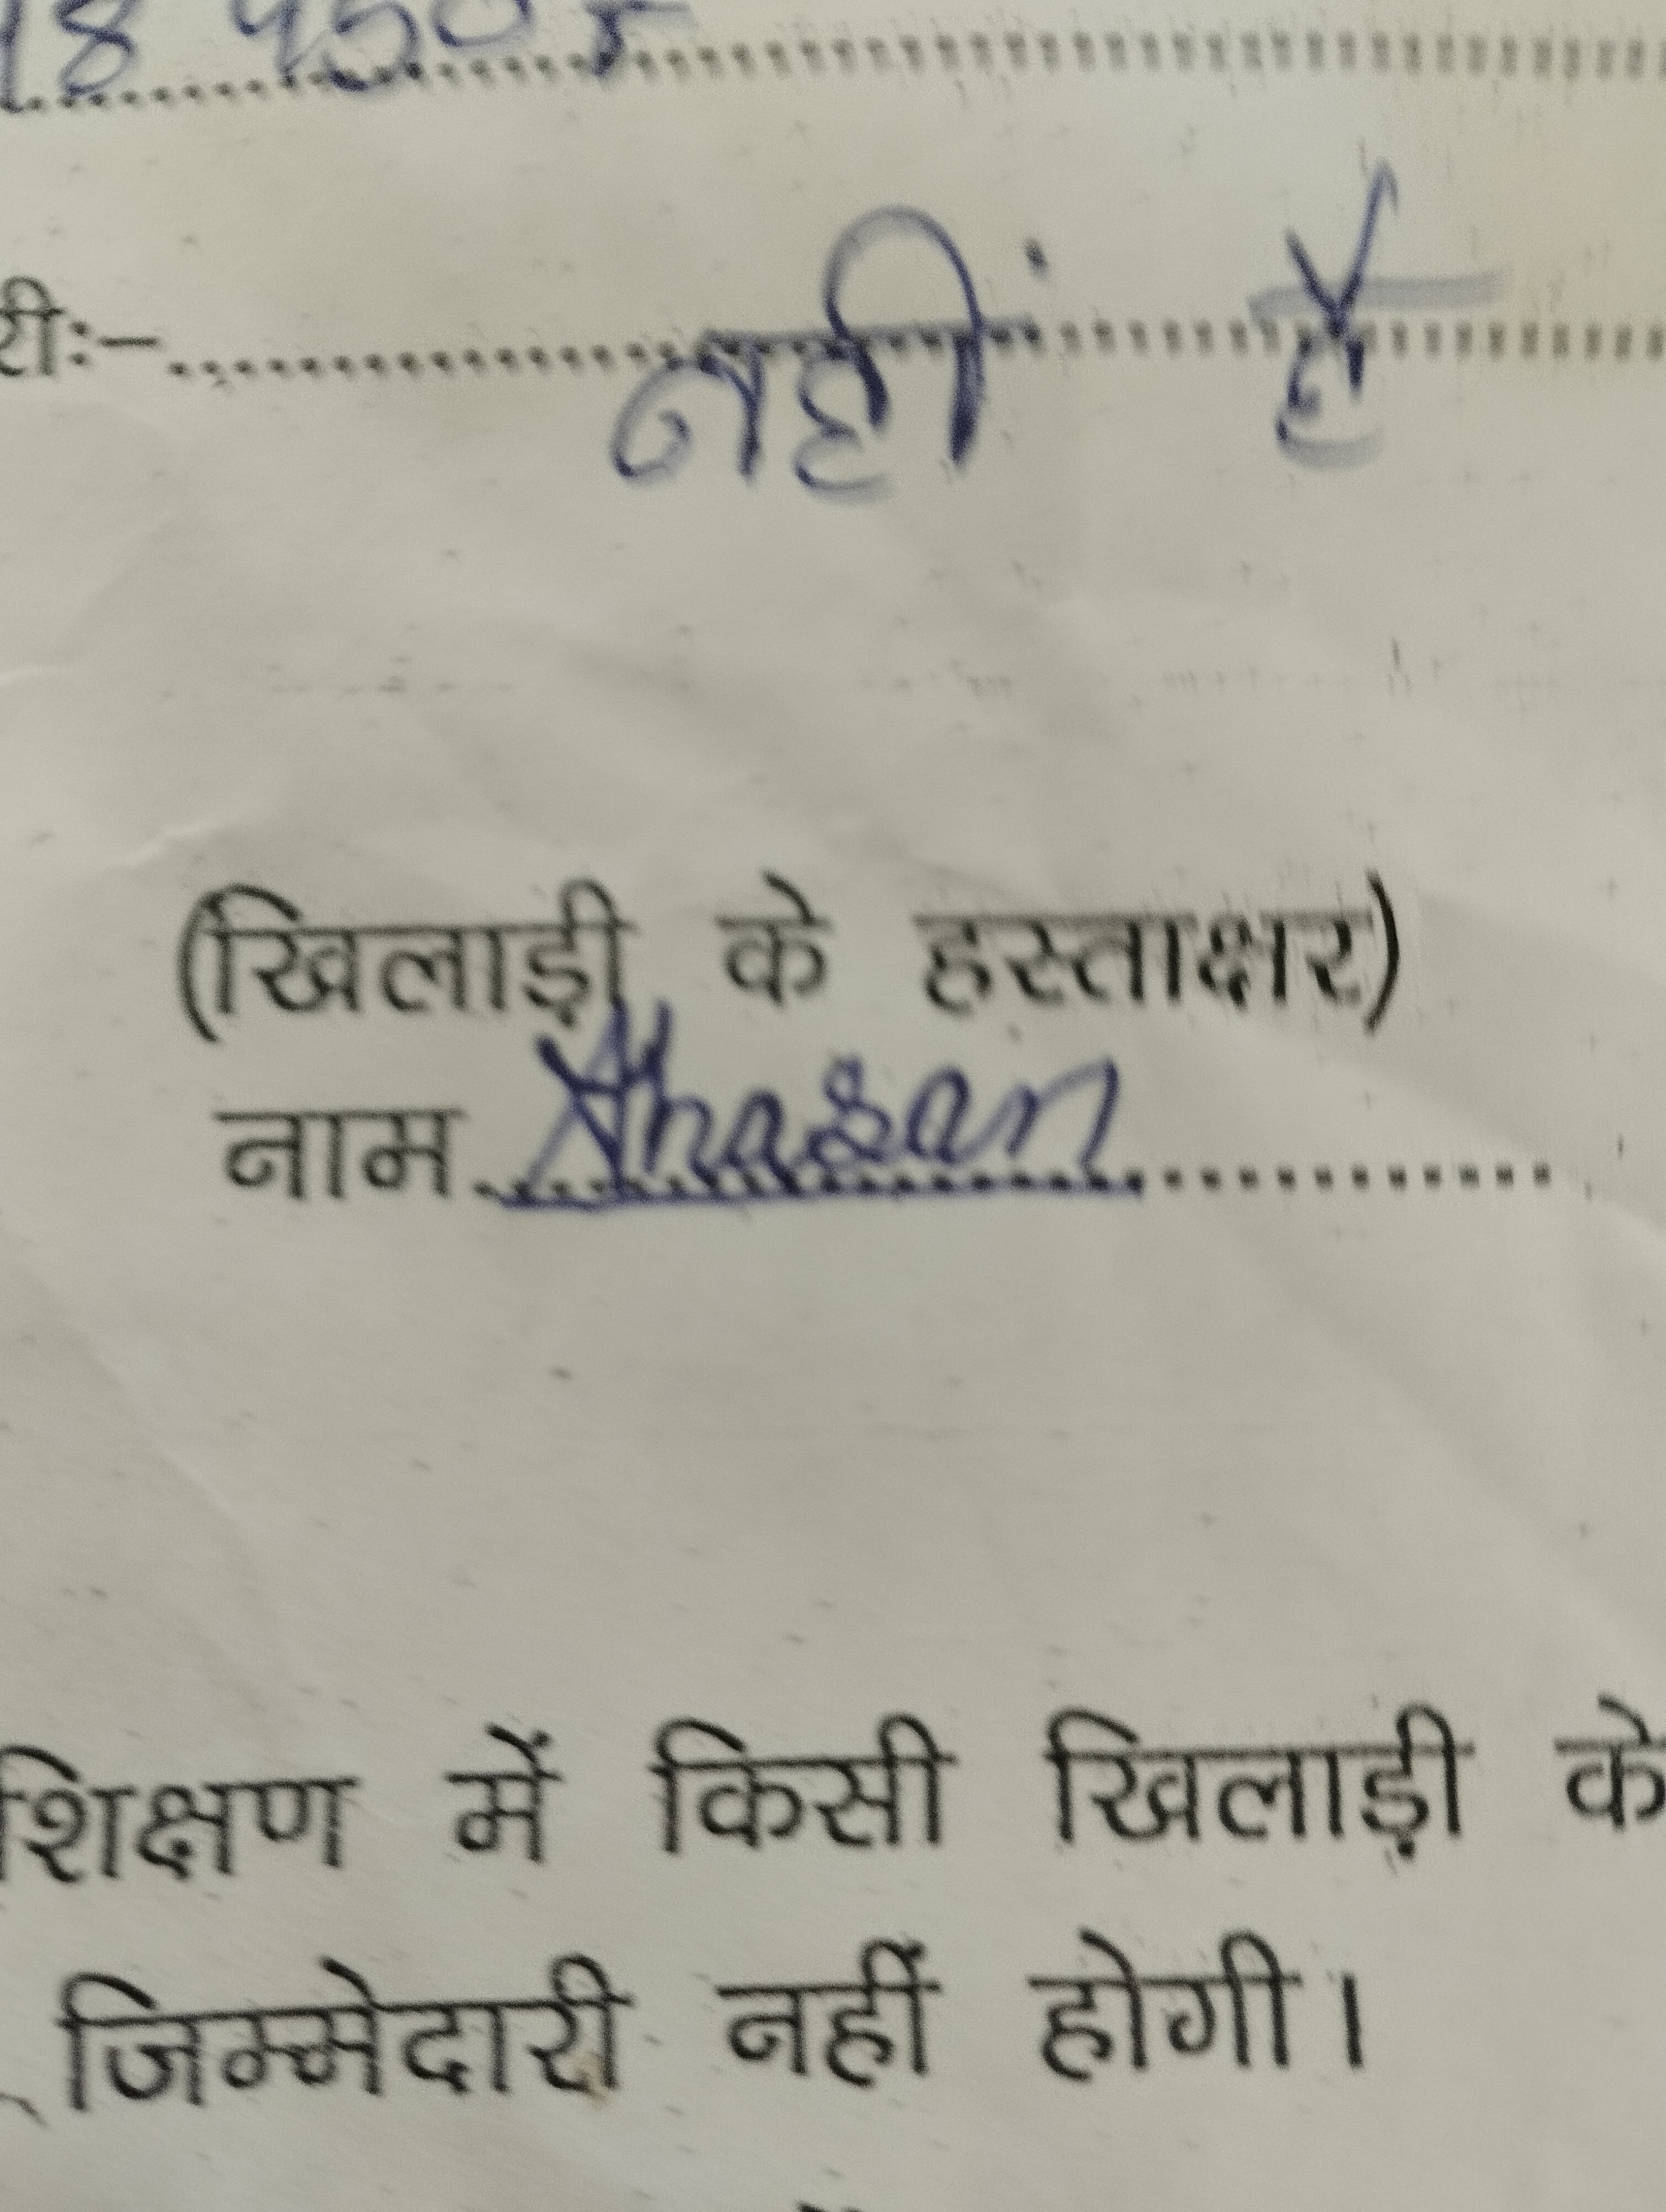 18 450
री:- नहीं है
(खिलाड़ी के हस्ताक्षर)
नाम Ahasan
शिक्षण में किसी खिलाड़ी के
जिम्मेदारी नहीं होगी।